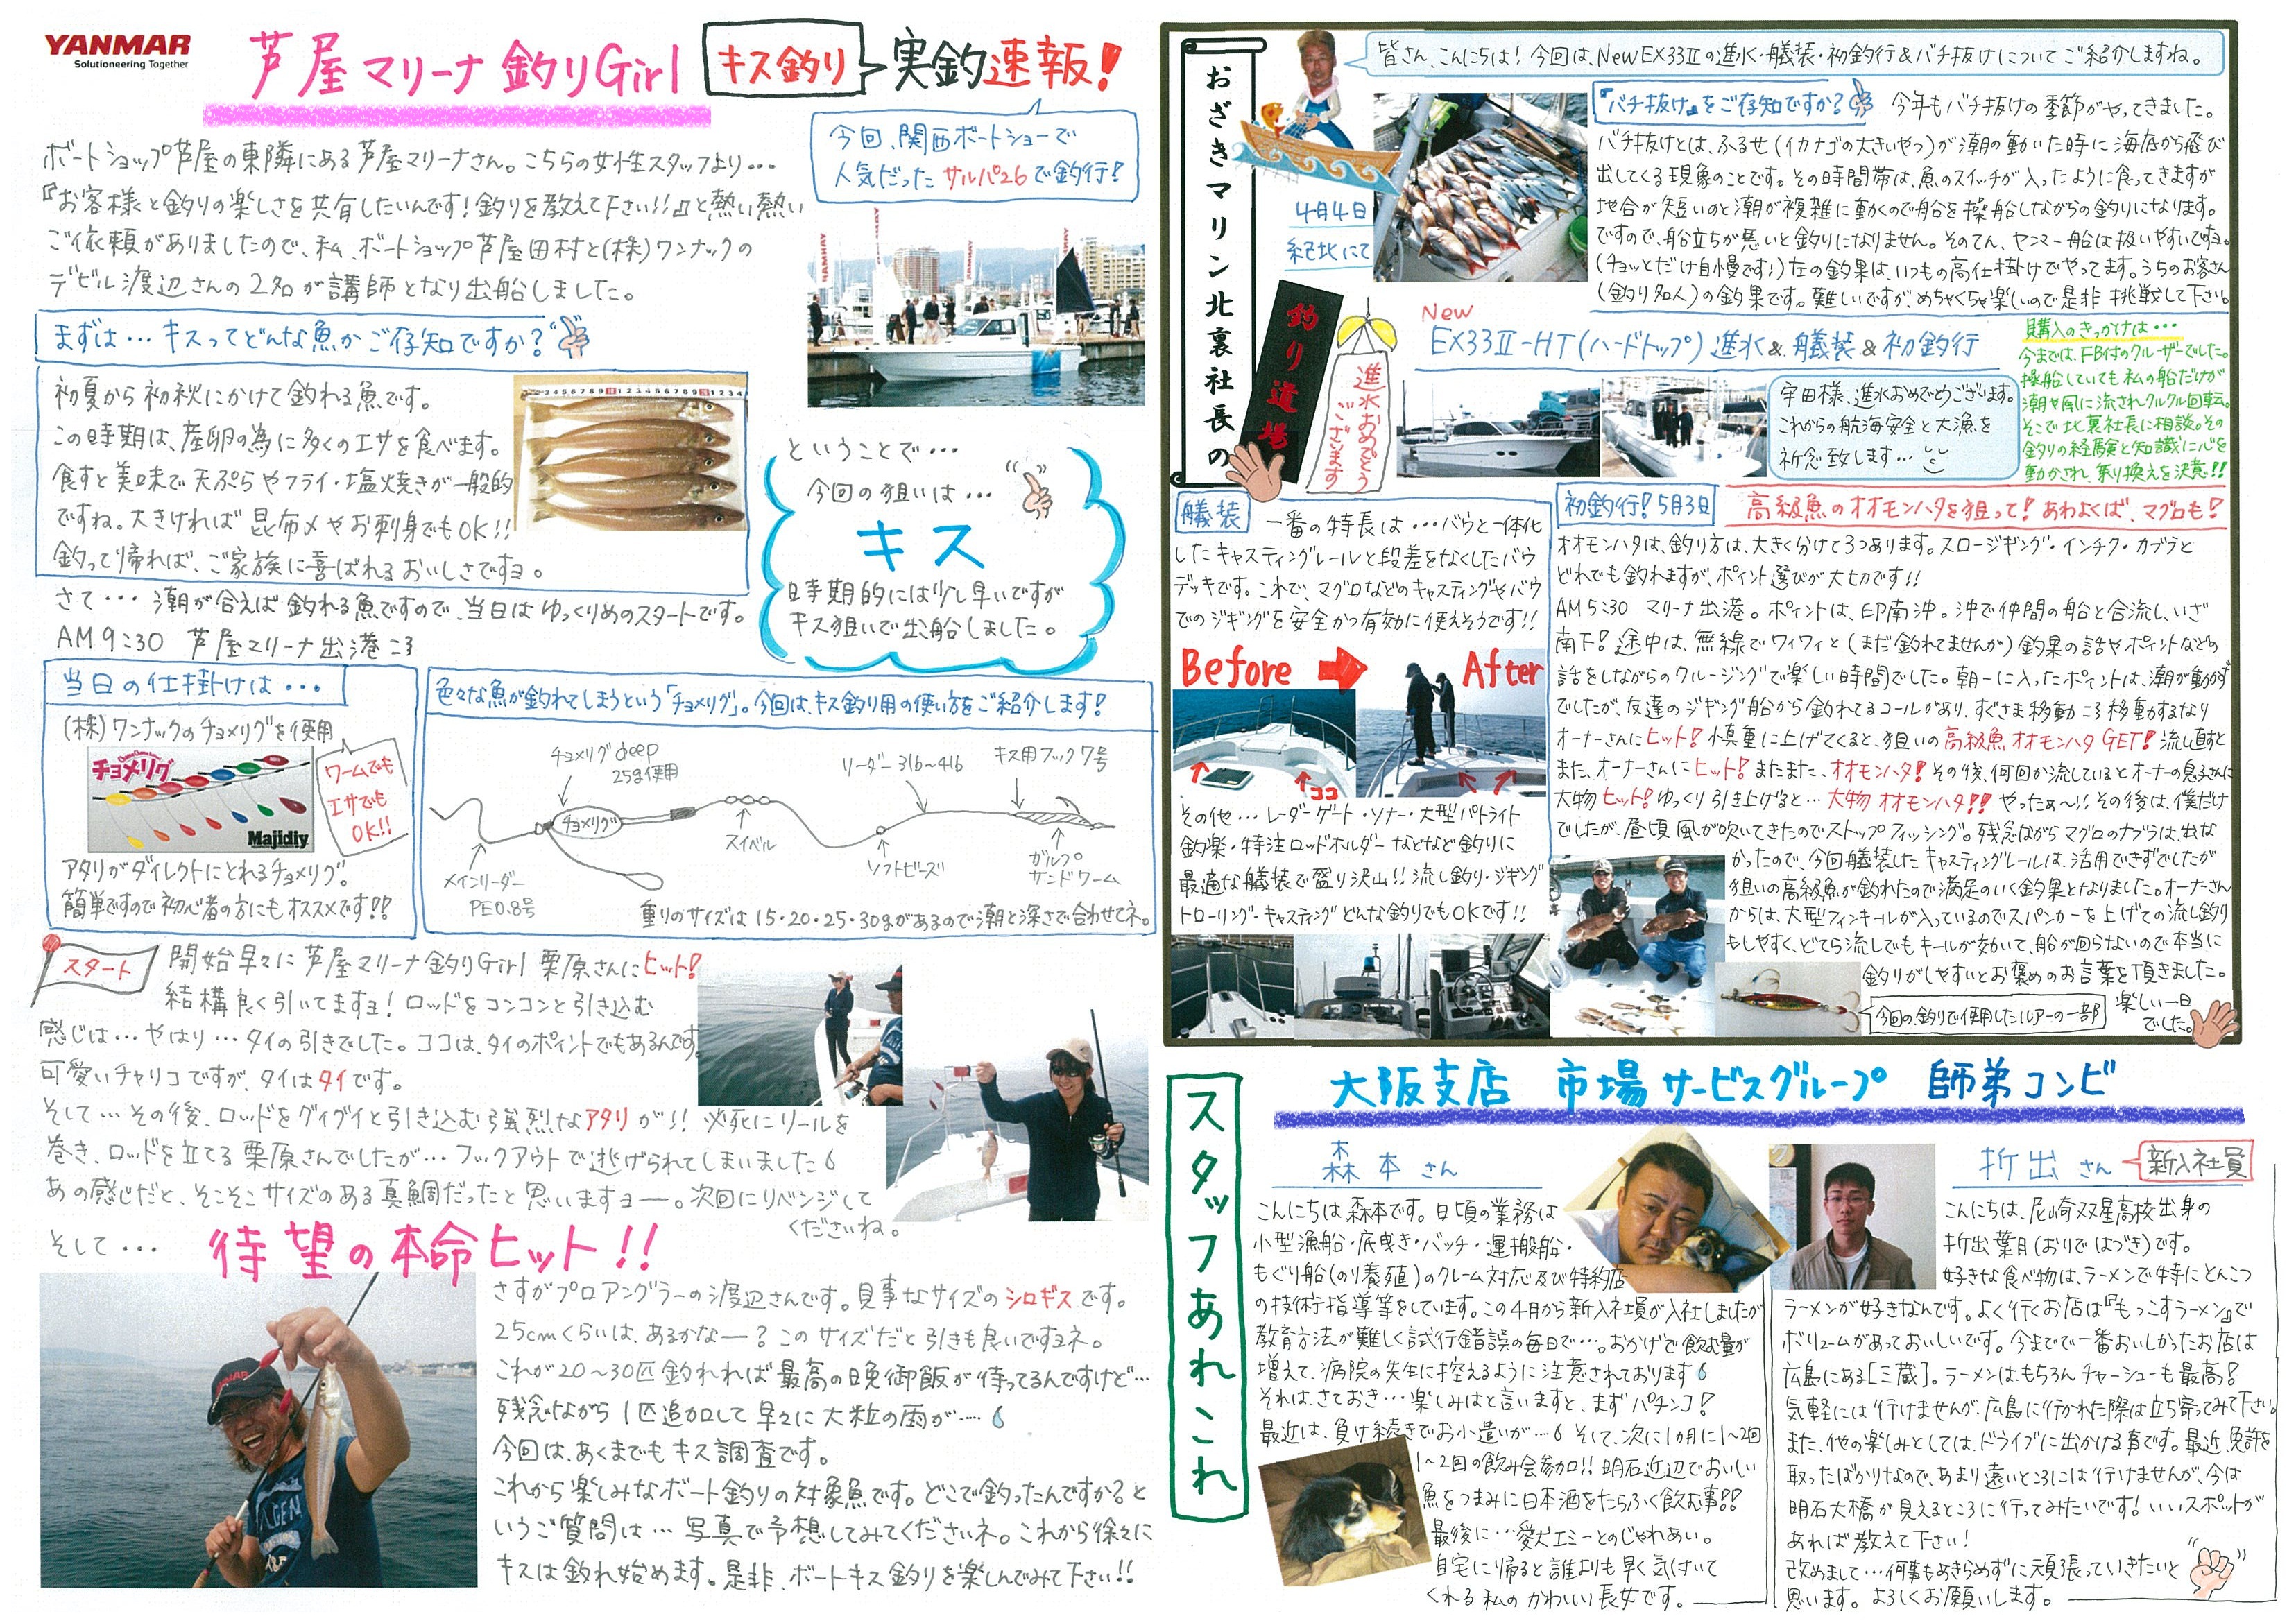 YANMAR
Solutioneering Together
芦屋マリーナ 釣りGirl キス釣り 実釣速報!
今回、関西ボートショーで
人気だった サルパ26で釣行!
ボートショップ芦屋の東隣にある芦屋マリーナさん。こちらの女性スタッフより…
『お客様と釣りの楽しさを共有したいんです!釣りを教えて下さい!!』と熱い熱い
ご依頼がありましたので、私、ボートショップ芦屋田村と(株)ワンナックの
デビル渡辺さんの2名が講師となり出船しました。
まずは…キスってどんな魚かご存知ですか?
初夏から初秋にかけて釣れる魚です。
この時期は、産卵の為に多くのエサを食べます。
食すと美味で天ぷらやフライ・塩焼きが一般的
ですね。大きければ昆布〆やお刺身でもOK!!
釣って帰れば、ご家族に喜ばれるおいしさですョ。
ということで…
今回の狙いは…
キス
時期的には少し早いですが
キス狙いで出船しました。
さて…潮が合えば釣れる魚ですので、当日はゆっくりめのスタートです。
AM9:30 芦屋マリーナ出港ニ3
当日の仕掛けは…
(株)ワンナックのチョメリグを使用
チョメリグ
Majidiy
ワームでも
エサでも
OK!!
アタリがダイレクトにとれるチョメリグ。
簡単ですので初心者の方にもオススメです!!
色々な魚が釣れてしまうという「チョメリグ」。今回は、キス釣り用の使い方をご紹介します!
チョメリグdeep
25g使用
リーダー 3lb~4lb
キス用フック7号
チョメリグ
スイベル
ソフトビーズ
ガルプ
サンドワーム
メインリーダー
PE0.8号
重りのサイズは15・20・25・30gがあるので潮と深さで合わせてネ。
スタート
開始早々に芦屋マリーナ釣りGirl 栗原さんにヒット!
結構良く引いてますョ!ロッドをコンコンと引き込む
感じは…やはり…タイの引きでした。ココは、タイのポイントでもあるんです。
可愛いチャリコですが、タイはタイです。
そして…その後、ロッドをグイグイと引き込む強烈なアタリが!!必死にリールを
巻き、ロッドを立てる栗原さんでしたが…フックアウトで逃げられてしまいました
あの感じだと、そこそこサイズのある真鯛だったと思いますョー。次回にリベンジして
くださいね。
そして… 待望の本命ヒット!!
さすがプロアングラーの渡辺さんです。見事なサイズのシロギスです。
25cmくらいは、あるかなー?このサイズだと引きも良いですヨネ。
これが20~30匹釣れれば最高の晩御飯が待ってるんですけど…
残念ながら1匹追加して早々に大粒の雨が…
今回は、あくまでもキス調査です。
これから楽しみなボート釣りの対象魚です。どこで釣ったんですか?と
いうご質問は…写真で予想してみてくださいネ。これから徐々に
キスは釣れ始めます。是非、ボートキス釣りを楽しんでみて下さい!!
おざきマリン北裏社長の
釣り道場
皆さん、こんにちは!今回は、NewEX33Ⅱの進水・艤装・初釣行&バチ抜けについてご紹介しますね。
4月4日
紀北にて
『バチ抜け』をご存知ですか? 今年もバチ抜けの季節がやってきました。
バチ抜けとは、ふるせ(イカナゴの大きいやつ)が潮の動いた時に海底から飛び
出してくる現象のことです。その時間帯は、魚のスイッチが入ったように食ってきますが
地合が短いのと潮が複雑に動くので船を操船しながらの釣りになります。
ですので、船立ちが悪いと釣りになりません。そのてん、ヤンマー船は扱いやすいですョ。
(チョッとだけ自慢です!)左の釣果は、いつもの高仕掛けでやってます。うちのお客さん
(釣り名人)の釣果です。難しいですが、めちゃくちゃ楽しいので是非挑戦して下さい。
進水おめでとう
ございます
New
EX33Ⅱ-HT(ハードトップ)進水&艤装&初釣行
宇田様、進水おめでとうございます。
これからの航海安全と大漁を
祈念致します…
購入のきっかけは…
今までは、FB付のクルーザーでした。
操船していても私の船だけが
潮や風に流されクルクル回転。
そこで北裏社長に相談。その
釣りの経験と知識に心を
動かされ、乗り換えを決意!!
艤装
一番の特長は…バウと一体化
したキャスティングレールと段差をなくしたバウ
デッキです。これで、マグロなどのキャスティングやバウ
でのジギングを安全かつ有効に使えそうです!!
Before
After
ココ
その他…レーダーゲート・ソナー・大型パトライト
釣楽・特注ロッドホルダーなどなど釣りに
最適な艤装で盛り沢山!!流し釣り・ジギング
トローリング・キャスティングどんな釣りでもOKです!!
初釣行!5月3日 高級魚のオオモンハタを狙って!あわよくば、マグロも!
オオモンハタは、釣り方は、大きく分けて3つあります。スロージギング・インチク・カブラと
どれでも釣れますが、ポイント選びが大切です!!
AM5:30 マリーナ出港。ポイントは、印南沖。沖で仲間の船と合流し、いざ
南下!途中は、無線でワイワイと(まだ釣れてませんが)釣果の話やポイントなどの
話をしながらのクルージングで楽しい時間でした。朝一に入ったポイントは、潮が動かず
でしたが、友達のジギング船から釣れてるコールがあり、すぐさま移動ニ3移動するなり
オーナーさんにヒット!慎重に上げてくると、狙いの高級魚オオモンハタGET!流し直すと
また、オーナーさんにヒット!またまた、オオモンハタ!その後、何回か流しているとオーナーの息子さんに
大物ヒット!ゆっくり引き上げると…大物オオモンハタ!!やったぁ~!!その後は、僕だけ
でしたが、昼頃風が吹いてきたのでストップフィッシング。残念ながらマグロのナブラは、出な
かったので、今回艤装したキャスティングレールは、活用できずでしたが
狙いの高級魚が釣れたので満足のいく釣果となりました。オーナーさん
からは、大型フィンキールが入っているのでスパンカーを上げての流し釣り
もしやすく、どてら流しでもキールが効いて、船が回らないので本当に
釣りがしやすいとお褒めのお言葉を頂きました。
楽しい一日
でした。
今回の釣りで使用したルアーの一部
スタッフあれこれ
大阪支店 市場サービスグループ 師弟コンビ
森本さん
こんにちは、森本です。日頃の業務は
小型漁船・底曳き・バッチ・運搬船・
もぐり船(のり養殖)のクレーム対応及び特約店
の技術指導等をしています。この4月から新入社員が入社しましたが
教育方法が難しく試行錯誤の毎日で…。おかげで飲む量が
増えて、病院の先生に控えるように注意されております
それは、さておき…楽しみはと言いますと、まずパチンコ!
最近は、負け続きでお小遣いが…そして、次に1カ月に1~2回
1~2回の飲み会参加!!明石近辺でおいしい
魚をつまみに日本酒をたらふく飲む事!!
最後に…愛犬エミーとのじゃれあい。
自宅に帰ると誰よりも早く気付いて
くれる私のかわいい長女です。
折出さん 新入社員
こんにちは、尼崎双星高校出身の
折出葉月(おりで はづき)です。
好きな食べ物は、ラーメンで特にとんこつ
ラーメンが好きなんです。よく行くお店は『もっこすラーメン』で
ボリュームがあっておいしいです。今までで一番おいしかったお店は
広島にある[三蔵]。ラーメンはもちろんチャーシューも最高!
気軽には行けませんが、広島に行かれた際は立ち寄ってみて下さい。
また、他の楽しみとしては、ドライブに出かける事です。最近、免許を
取ったばかりなので、あまり遠いところには行けませんが、今は
明石大橋が見えるところに行ってみたいです!いいスポットが
あれば教えて下さい!
改めまして…何事もあきらめずに頑張っていきたいと
思います。よろしくお願いします。